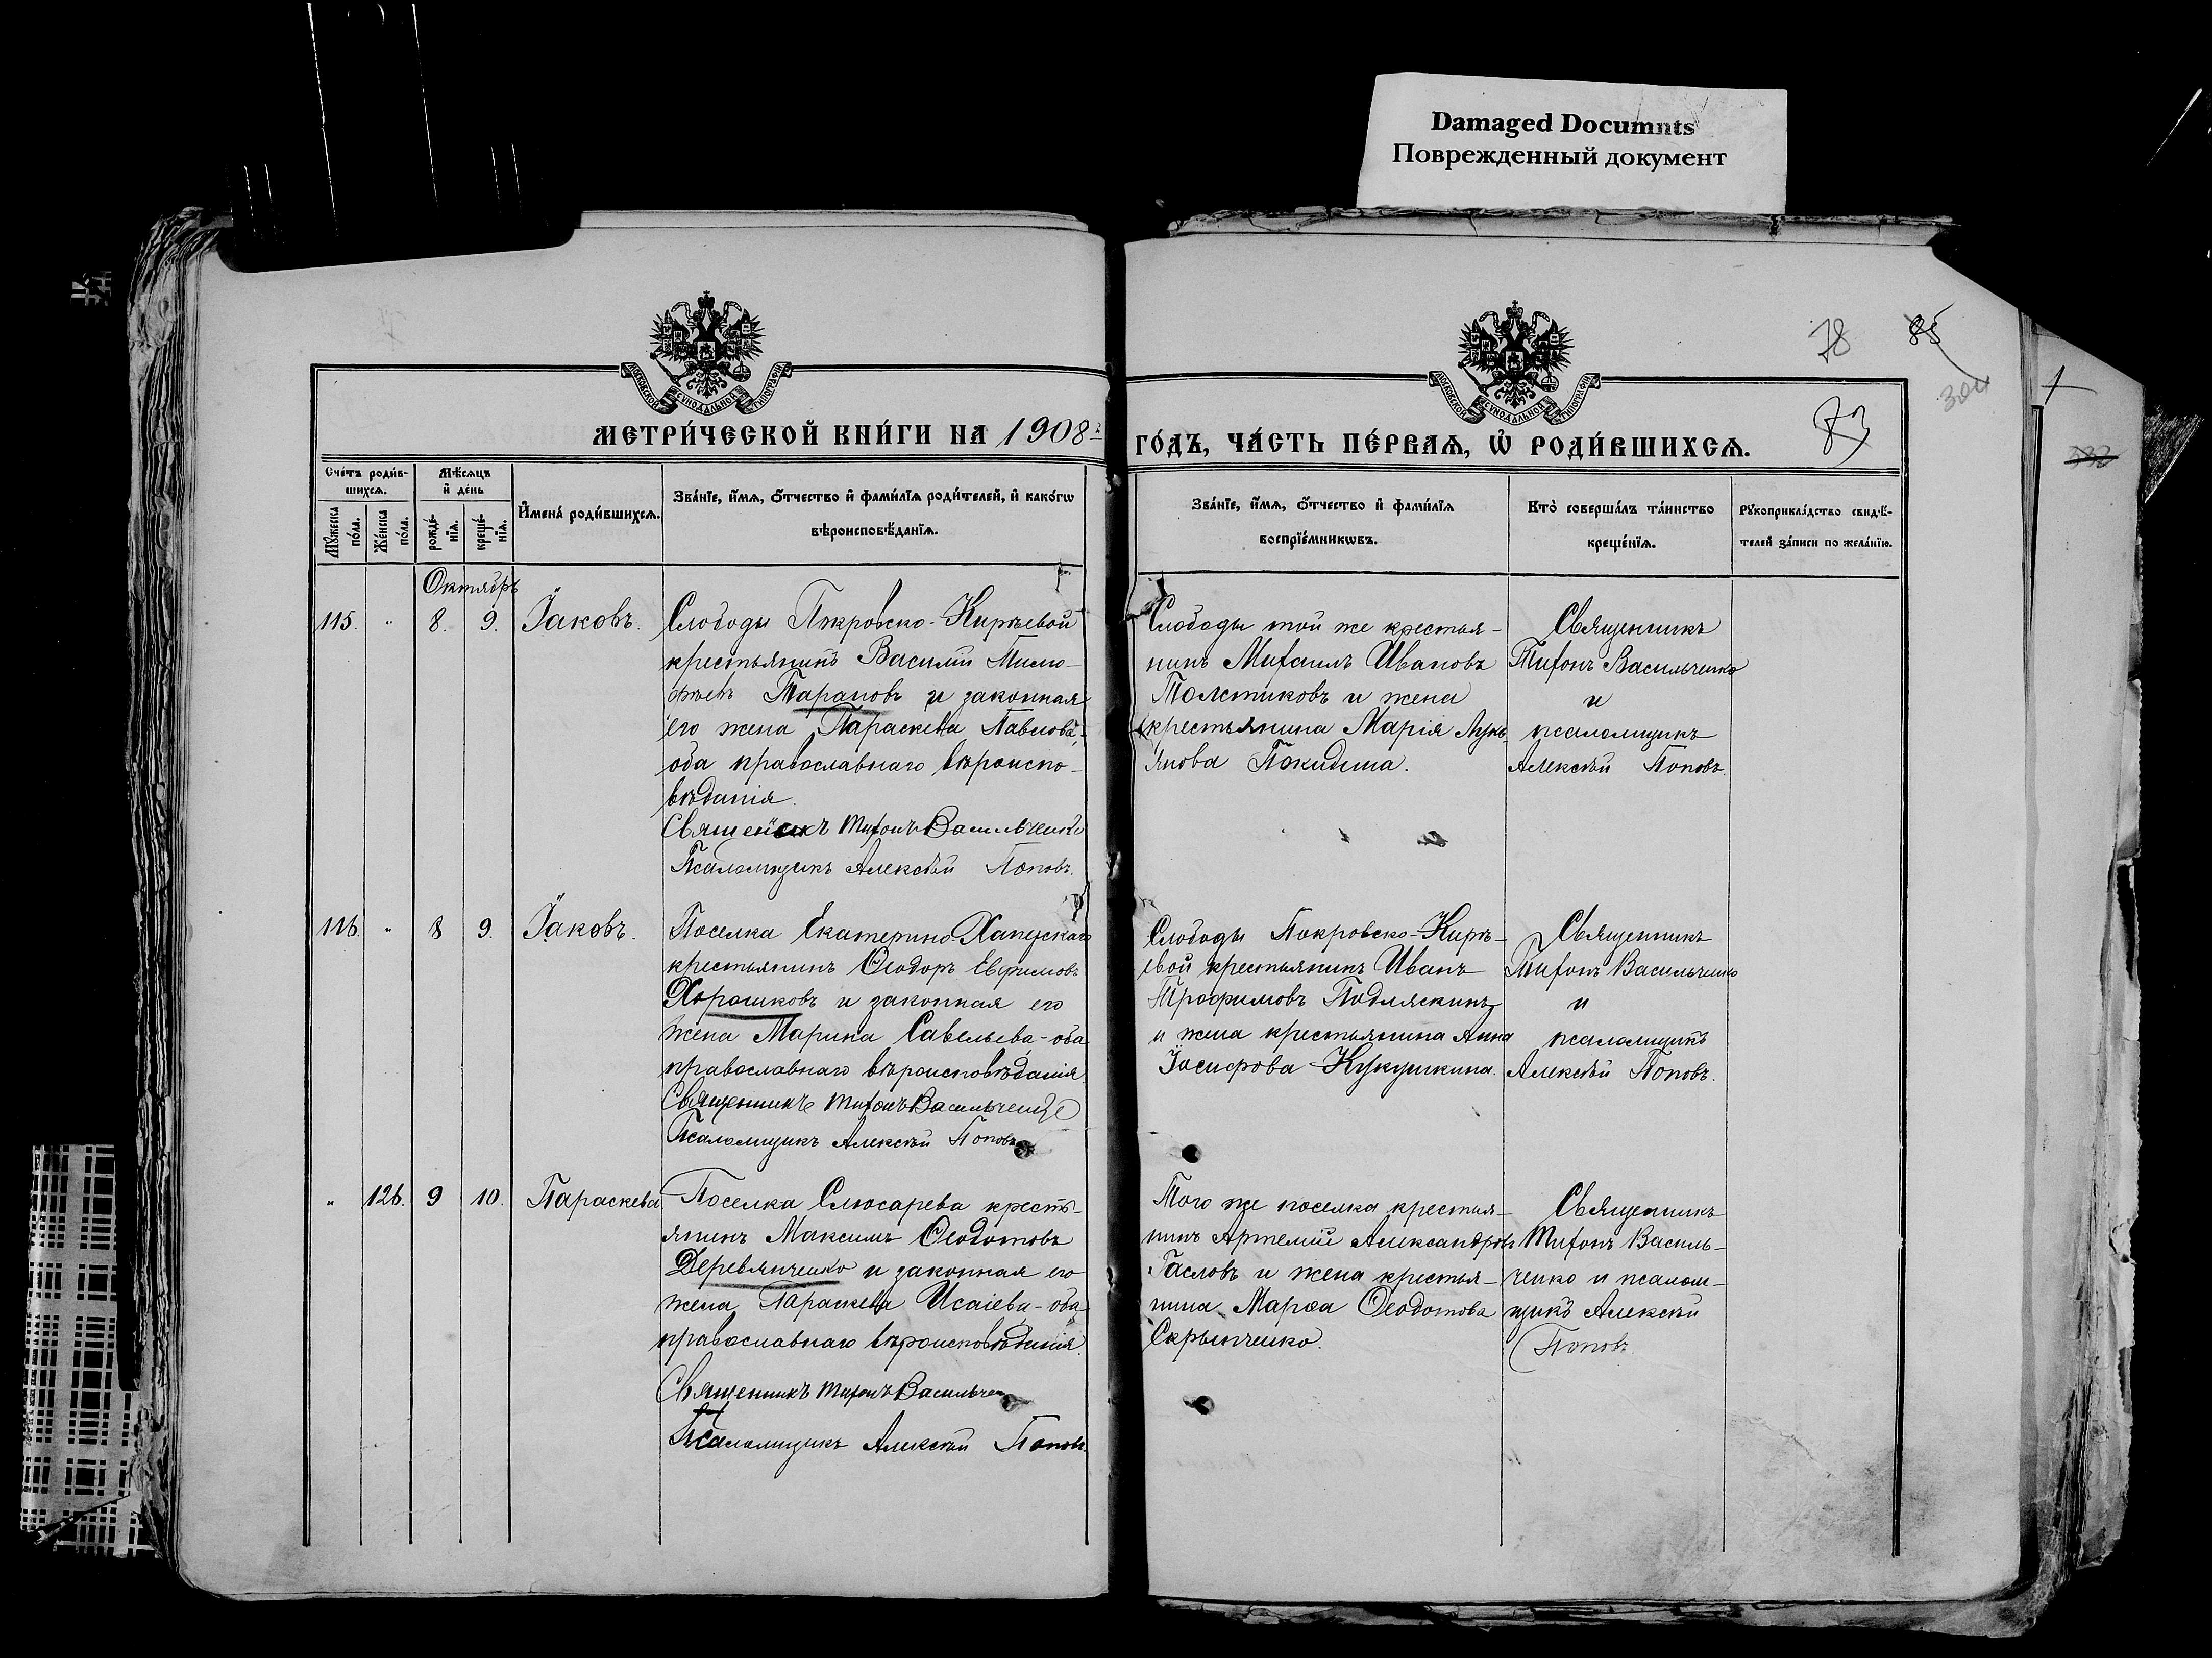 Damaged Documnts
Поврежденный документ
МОСКОВСКОЙ СѴНОДАЛЬНОЙ ТИПОГРАФІИ
МОСКОВСКОЙ СѴНОДАЛЬНОЙ ТИПОГРАФІИ
78 85
83
МЕТРИ́ЧЕСКОЙ КНИ́ГИ НА 1908 ГО́ДЪ, ЧА́СТЬ ПЕ́РВАЯ, Ѡ РОДИ́ВШИХСЯ.
Сче́тъ роди́в-
шихся.
Мѣ́сяцъ
и де́нь
Му́жеска по́ла.
Же́нска по́ла.
рожде́-нія.
креще́-нія.
Имена́ роди́вшихся.
Зва́ніе, и́мя, о́тчество и фами́лія роди́телей, и како́гѡ
вѣроисповѣ́данія.
Зва́ніе, и́мя, о́тчество и фами́лія
воспріе́мникѡвъ.
Кто̀ соверша́лъ та́инство
креще́нія.
Рукоприкла́дство свидѣ́-
телей за́писи по жела́нію.
Октябрь
115. " 8. 9. Іаковъ.
Слободы Покровско-Кирѣевой
крестьянинъ Василій Тимо-
фѣевъ Тарановъ и законная
его жена Параскева Павлова-
оба православнаго вѣроиспо-
вѣданія.
Священникъ Тихонъ Васильченко
Псаломщикъ Алексѣй Поповъ.
Слободы той же крестья-
нинъ Михаилъ Ивановъ
Толстиковъ и жена
крестьянина Марія Лукь-
янова
Священникъ
Тихонъ Васильченко
и
псаломщикъ
Алексѣй Поповъ.
116. " 8 9. Іаковъ.
Поселка Екатерино-Хаперскаго
крестьянинъ Ѳеодоръ Евфимовъ
Хорошковъ и законная его
жена Марина Савельева-оба
православнаго вѣроисповѣданія.
Священникъ Тихонъ Васильченко
Псаломщикъ Алексѣй Поповъ
Слободы Покровско-Кирѣ-
евой крестьянинъ Иванъ
Трофимовъ Подляскинъ
и жена крестьянина Анна
Іосифова Кукушкина.
Священникъ
Тихонъ Васильченко
и
псаломщикъ
Алексѣй Поповъ.
" 126. 9 10. Параскева
Поселка Слюсарева кресть-
янинъ Максимъ Ѳеодотовъ
Деревянченко и законная его
жена Параскева Исаіева-оба
православнаго вѣроисповѣданія.
Священникъ Тихонъ Васильчен
Псаломщикъ Алексѣй Поповъ.
Того же поселка крестья-
нинъ Артемій Александровъ
и жена крестья-
нина Марѳа Ѳеодотова
Скрынченко.
Священникъ
Тихонъ Василь-
ченко и псалом-
щикъ Алексѣй
Поповъ